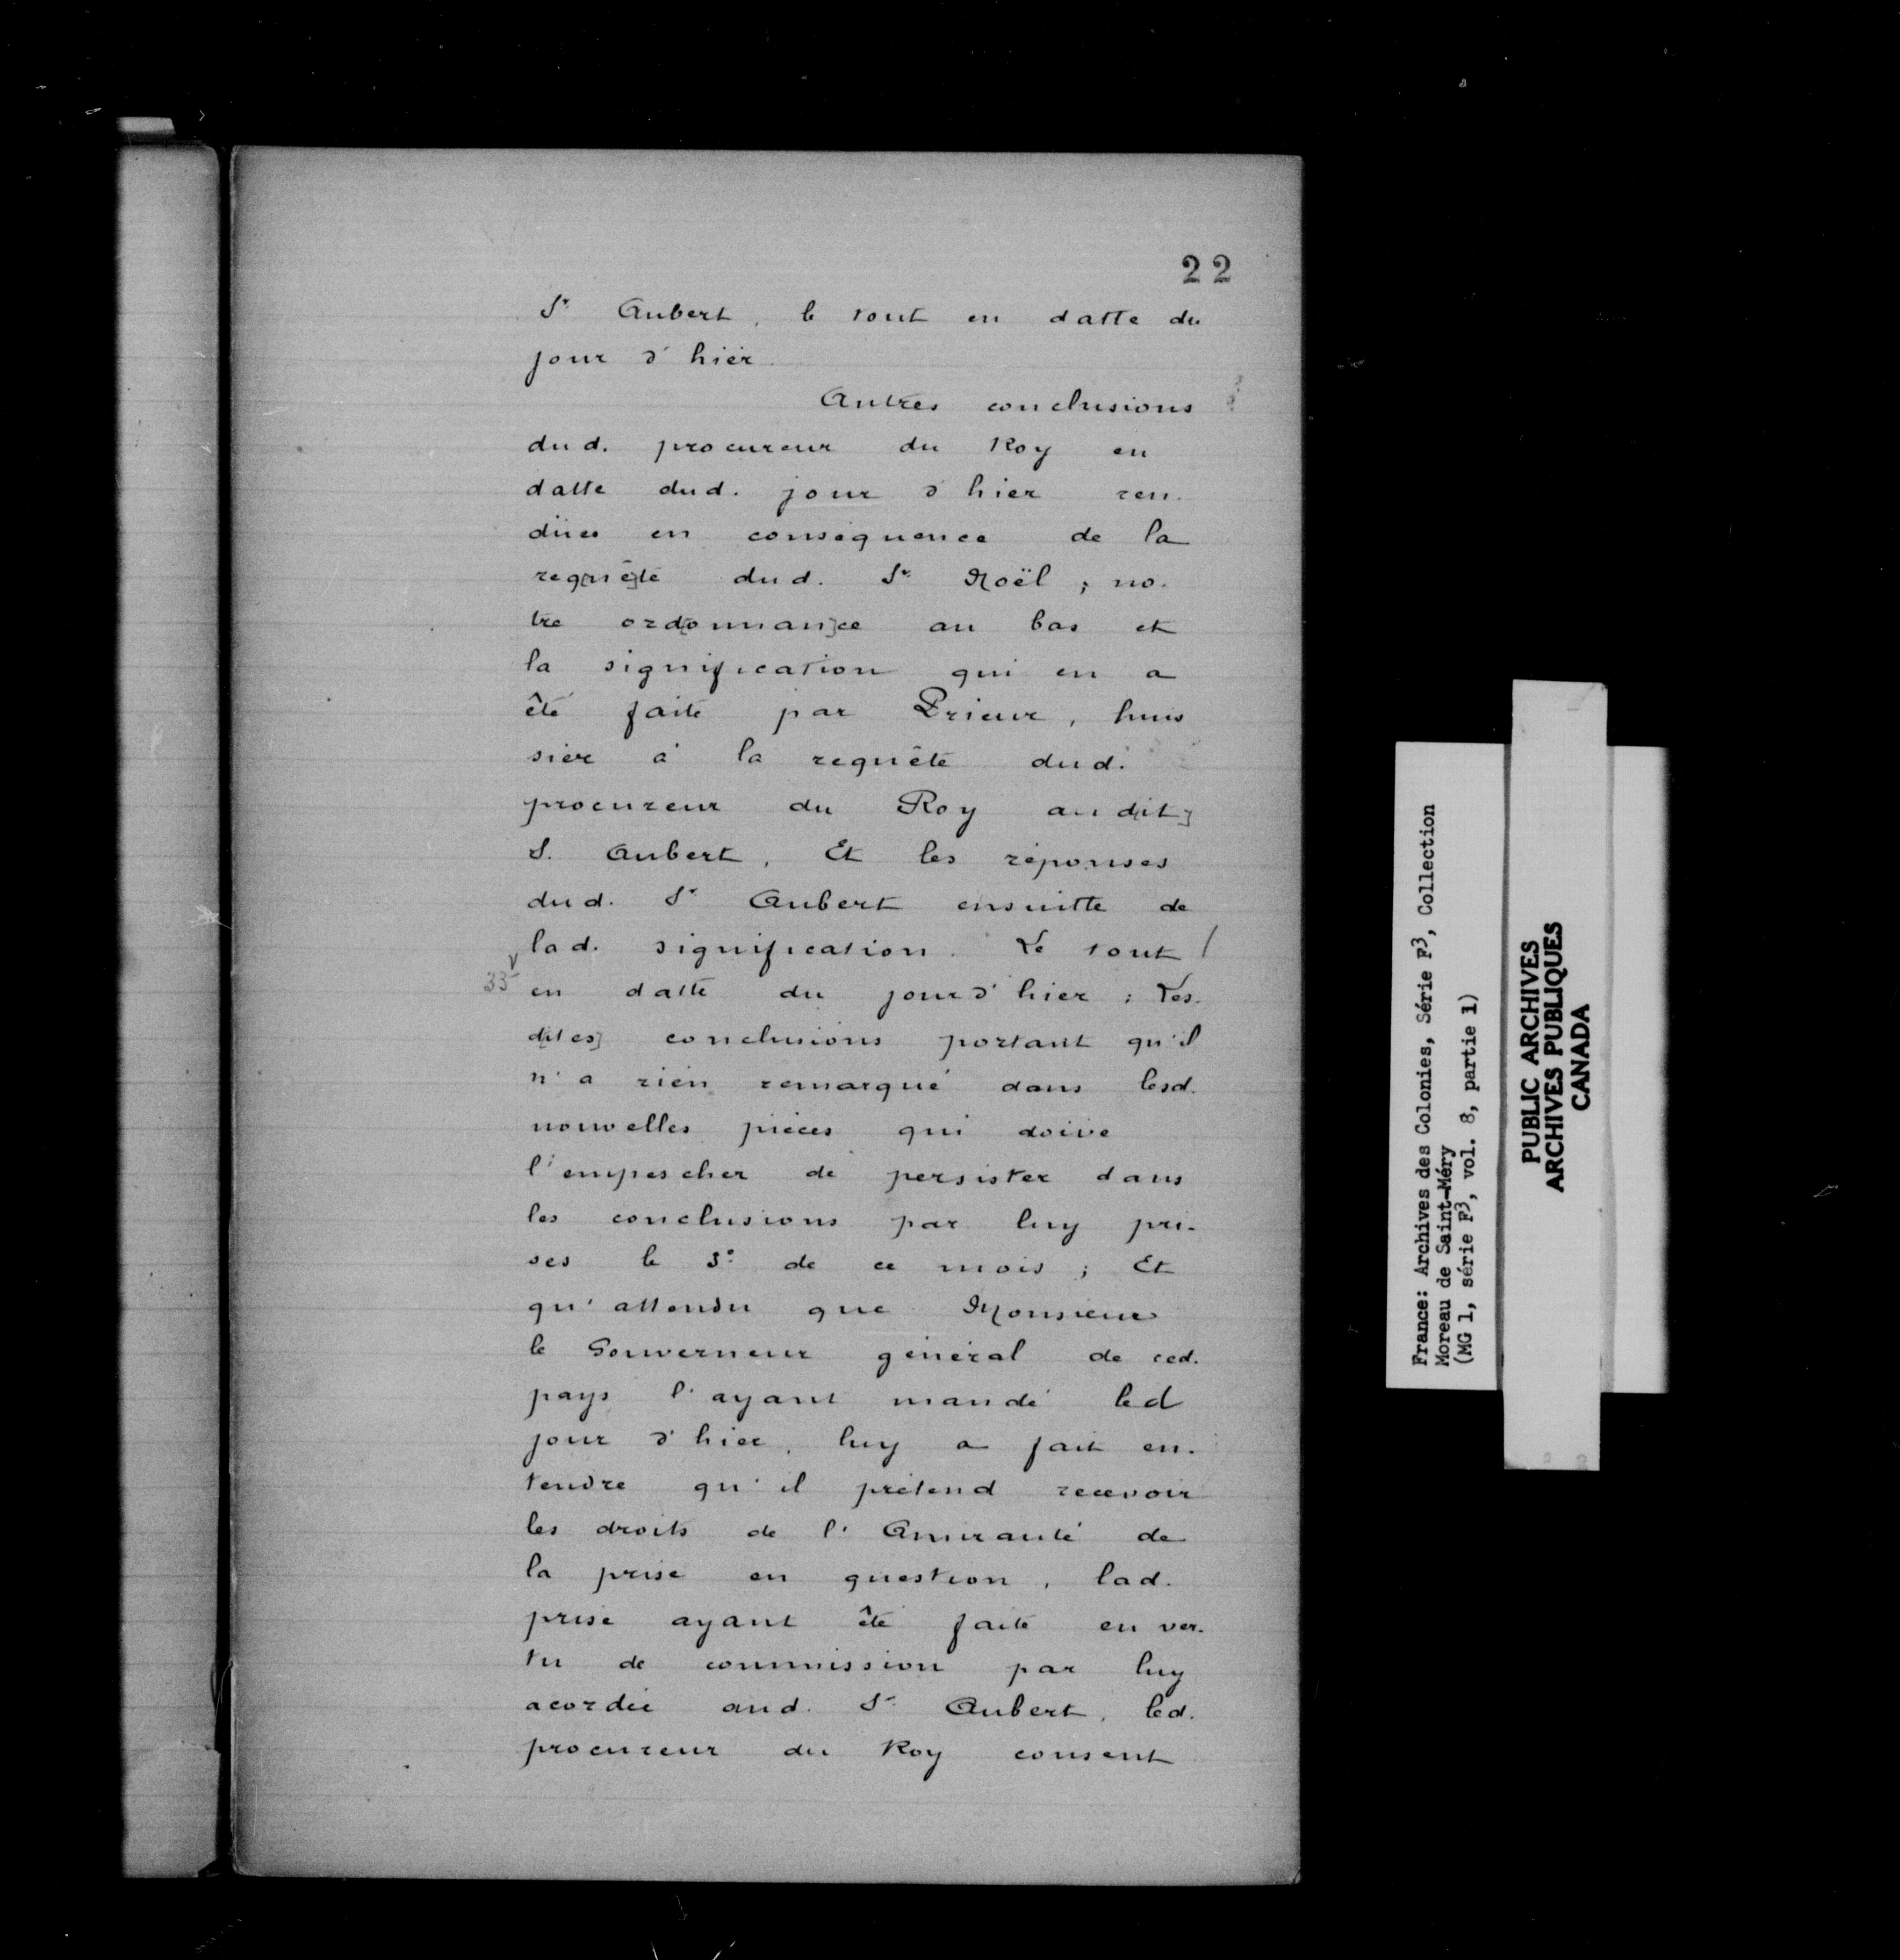 22
Sr Aubert, le tout en datte du
jour d'hier
Autres conclusions
dud. procureur du Roy en
datte dud. jour d'hier ren-
dües en conséquence de la
req[uê]te dud. Sr Noël ; no-
tre ord[onnan]ce au bas et
la signification qui en a
êté faite par Prieur, huis
sier à la requête dud.
procureur du Roy aud[it]
S. Aubert, Et les réponses
dud. Sr Aubert ensuitte de
lad. signification. Le tout /
35 en datte du jour d'hier ; Les-
d[ites] conclusions portant qu'il
n'a rien remarqué dans lesd.
nouvelles pièces qui doive
l'empescher de persister dans
les conclusions par luy pri-
ses le 3e de ce mois ; Et
qu'attendu que Monsieur
le Gouverneur général de ced.
pays l'ayant mandé led
jour d'hier, luy a fait en-
tendre qu'il prétend recevoir
les droits de l'Amirauté de
la prise en question, lad.
prise ayant êté faite en ver-
tu de commission par luy
acordée aud. Sr Aubert, led.
procureur du Roy consent
France: Archives des Colonies, Série F3, Collection
Moreau de Saint-Méry
(MG 1, série F3, vol. 8, partie 1)
PUBLIC ARCHIVES
ARCHIVES PUBLIQUES
CANADA